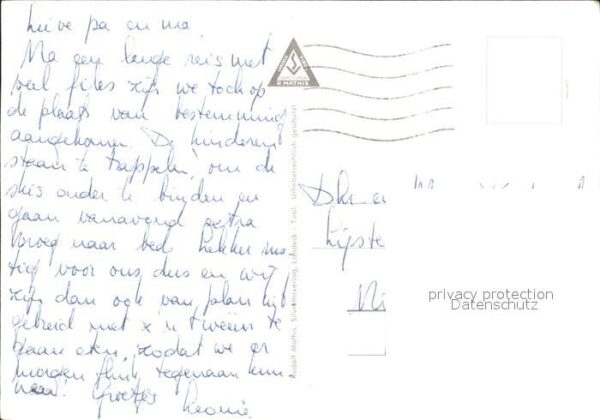 Lieve pa en ma,
Na een lange reis met
veel files zijn we toch op
de plaats van bestemming
aangekomen. De kinderen
staan te trappelen om de
skis onder te binden en
gaan vanavond extra
vroeg naar bed. Lekker rus
tig voor ons dus en wij
zijn dan ook van plan uit
gebreid met z'n tweeën te
gaan eten, zodat we er
morgen flink tegenaan kun
nen! Groetjes
Leonie.
MATHIS
Rudolf Mathis, Silvrettaverlag, Landeck - Tirol Urheberrechtlich geschützt
Dhr en
Lijste
Ni
privacy protection
Datenschutz